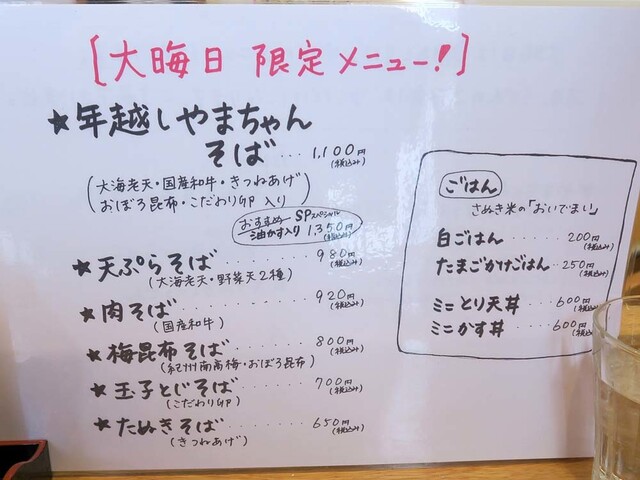 [大晦日 限定メニュー!]
★年越しやまちゃん
そば...1,100円
(税込み)
(大海老天・国産和牛・きつねあげ
おぼろ昆布・こだわり卵 入り)
おすすめ SPスペシャル
油かす入り 1,350円
(税込み)
★天ぷらそば......980円
(税込み)
(大海老天・野菜天2種)
★肉そば............920円
(税込み)
(国産和牛)
★梅昆布そば......800円
(税込み)
(紀州南高梅・おぼろ昆布)
★玉子とじそば......700円
(税込み)
(こだわり卵)
★たぬきそば......650円
(税込み)
(きつねあげ)
ごはん
さぬき米の「おいでまい」
白ごはん......200円
(税込み)
たまごかけごはん..250円
(税込み)
ミニとり天丼...600円
(税込み)
ミニかす丼...600円
(税込み)